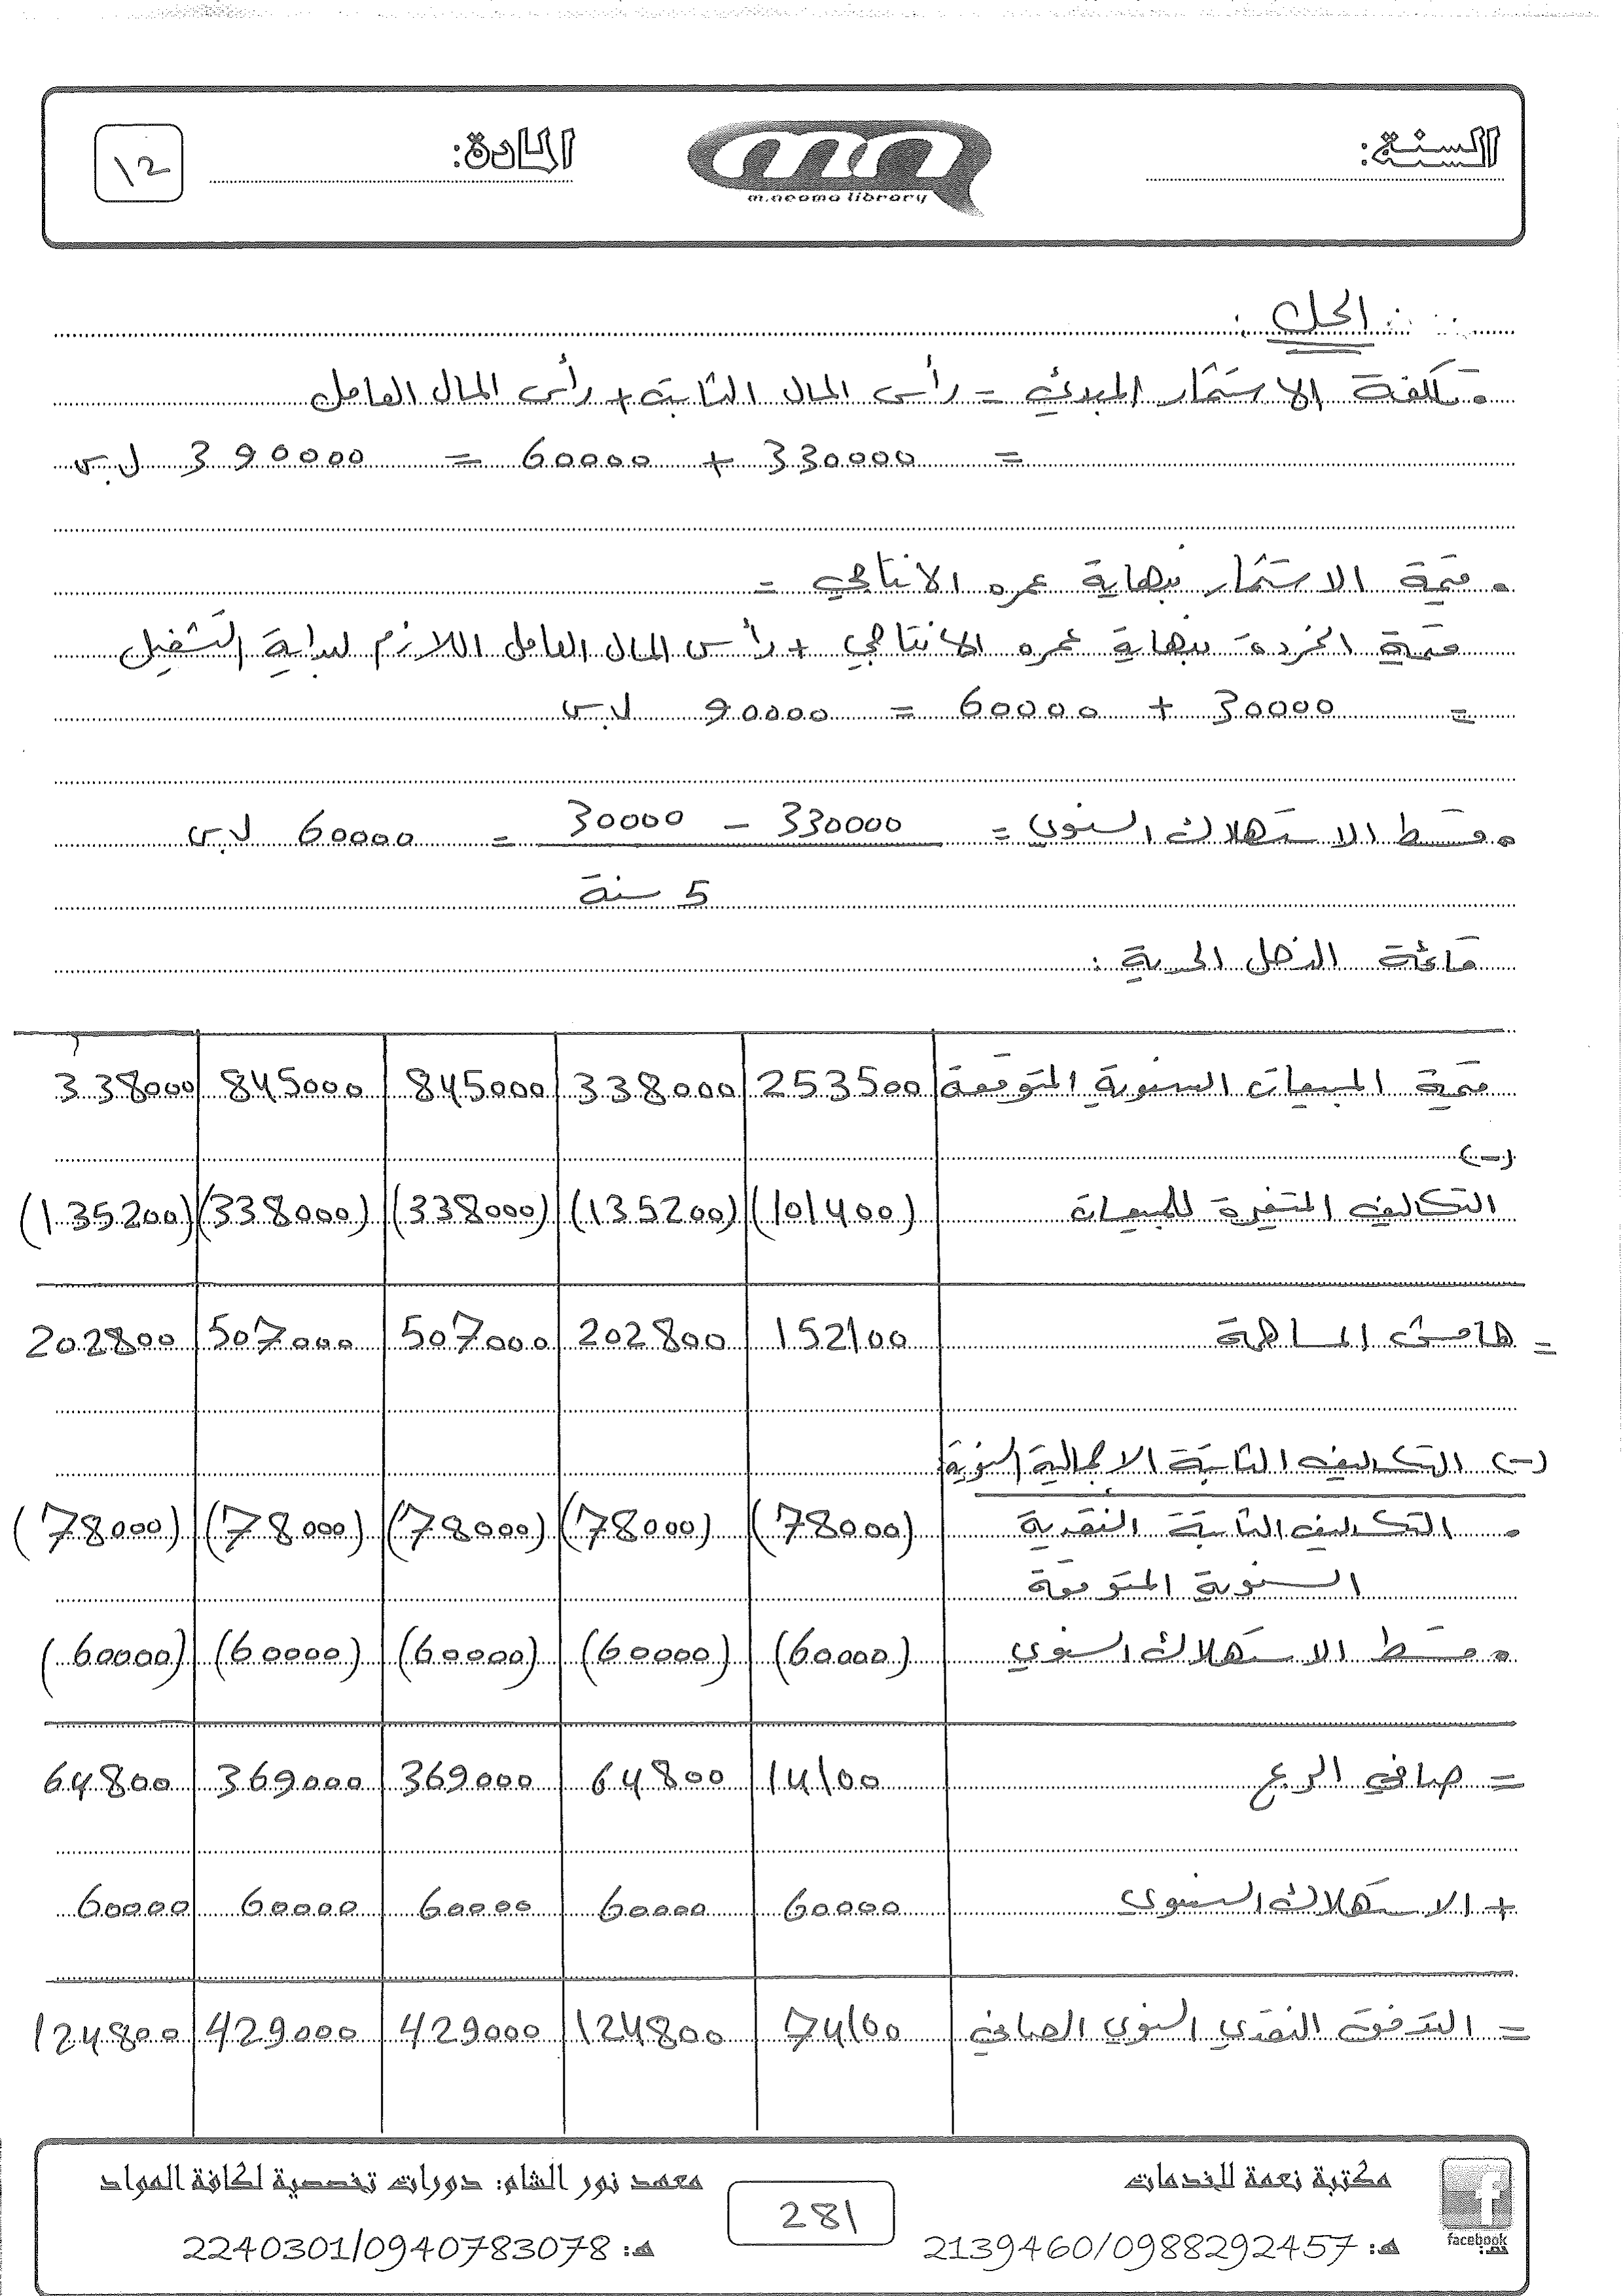 السنة:
المادة:
١٢
m.neoma library
الحل:
• تكلفة الاستثمار المبدئي = رأس المال الثابت + رأس المال العامل
= 330000 + 60000 = 390000 ل.س
• قيمة الاستثمار بنهاية عمره الانتاجي =
قيمة الخردة بنهاية عمره الانتاجي + رأس المال العامل اللازم لبداية التشغيل
= 30000 + 60000 = 90000 ل.س
• قسط الاستهلاك السنوي = 330000 - 30000 = 60000 ل.س
5 سنة
قائمة الدخل الحدية:
قيمة المبيعات السنوية المتوقعة 253500 338000 845000 845000 338000
(-)
التكاليف المتغيرة للمبيعات (101400) (135200) (338000) (338000) (135200)
= هامش المساهمة 152100 202800 507000 507000 202800
(-) التكاليف الثابتة الاجمالية السنوية
• التكاليف الثابتة النقدية (78000) (78000) (78000) (78000) (78000)
السنوية المتوقعة
• قسط الاستهلاك السنوي (60000) (60000) (60000) (60000) (60000)
= صافي الربح 14100 64800 369000 369000 64800
+ الاستهلاك السنوي 60000 60000 60000 60000 60000
= التدفق النقدي السنوي الصافي 74100 124800 429000 429000 124800
مكتبة نعمة للخدمات
هـ: 2139460/0988292457
281
معهد نور الشام: دورات تخصصية لكافة المواد
هـ: 2240301/0940783078
facebook